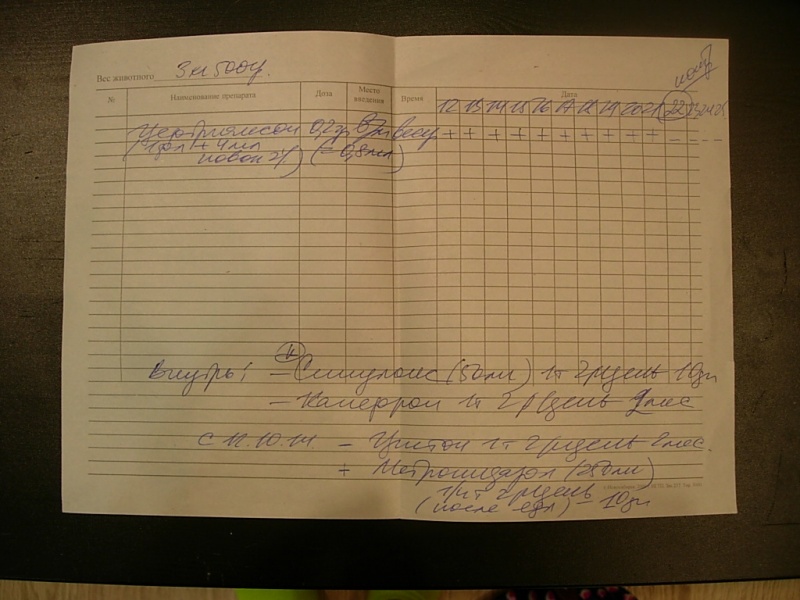 Вес животного 3 кг 500 гр.
№ Наименование препарата Доза Место введения Время Дата
12 13 14 15 16 17 18 19 20 21 22 23 24 25
Цефтриаксон 0,2гр в/м + + + + + + + + + + _ _ _ _
(1фл + 4мл новок 2%) (= 0,8мл)
Внутрь: – Синулокс (50мг) 1т 2р/день 10дн
– Канефрон 1т 2р/день 2мес
с 12.10.14 – Цистон 1т 2р/день 2мес.
+ Метронидазол (250мг)
1/4т 2р/день
(после еды) – 10дн